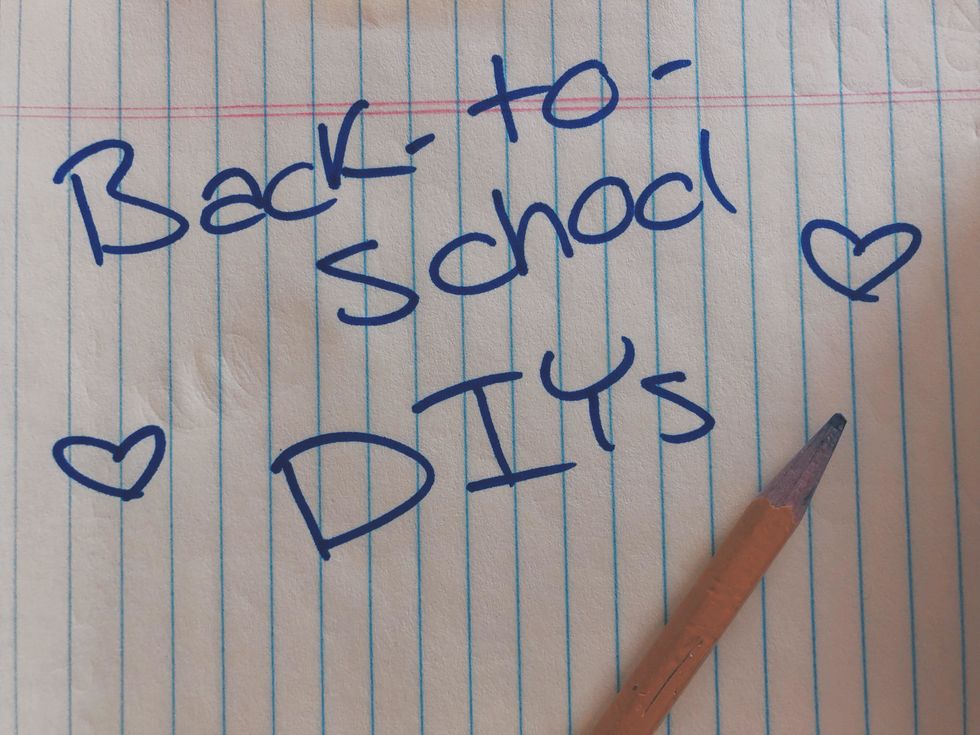 Back-to-
School
DIYs